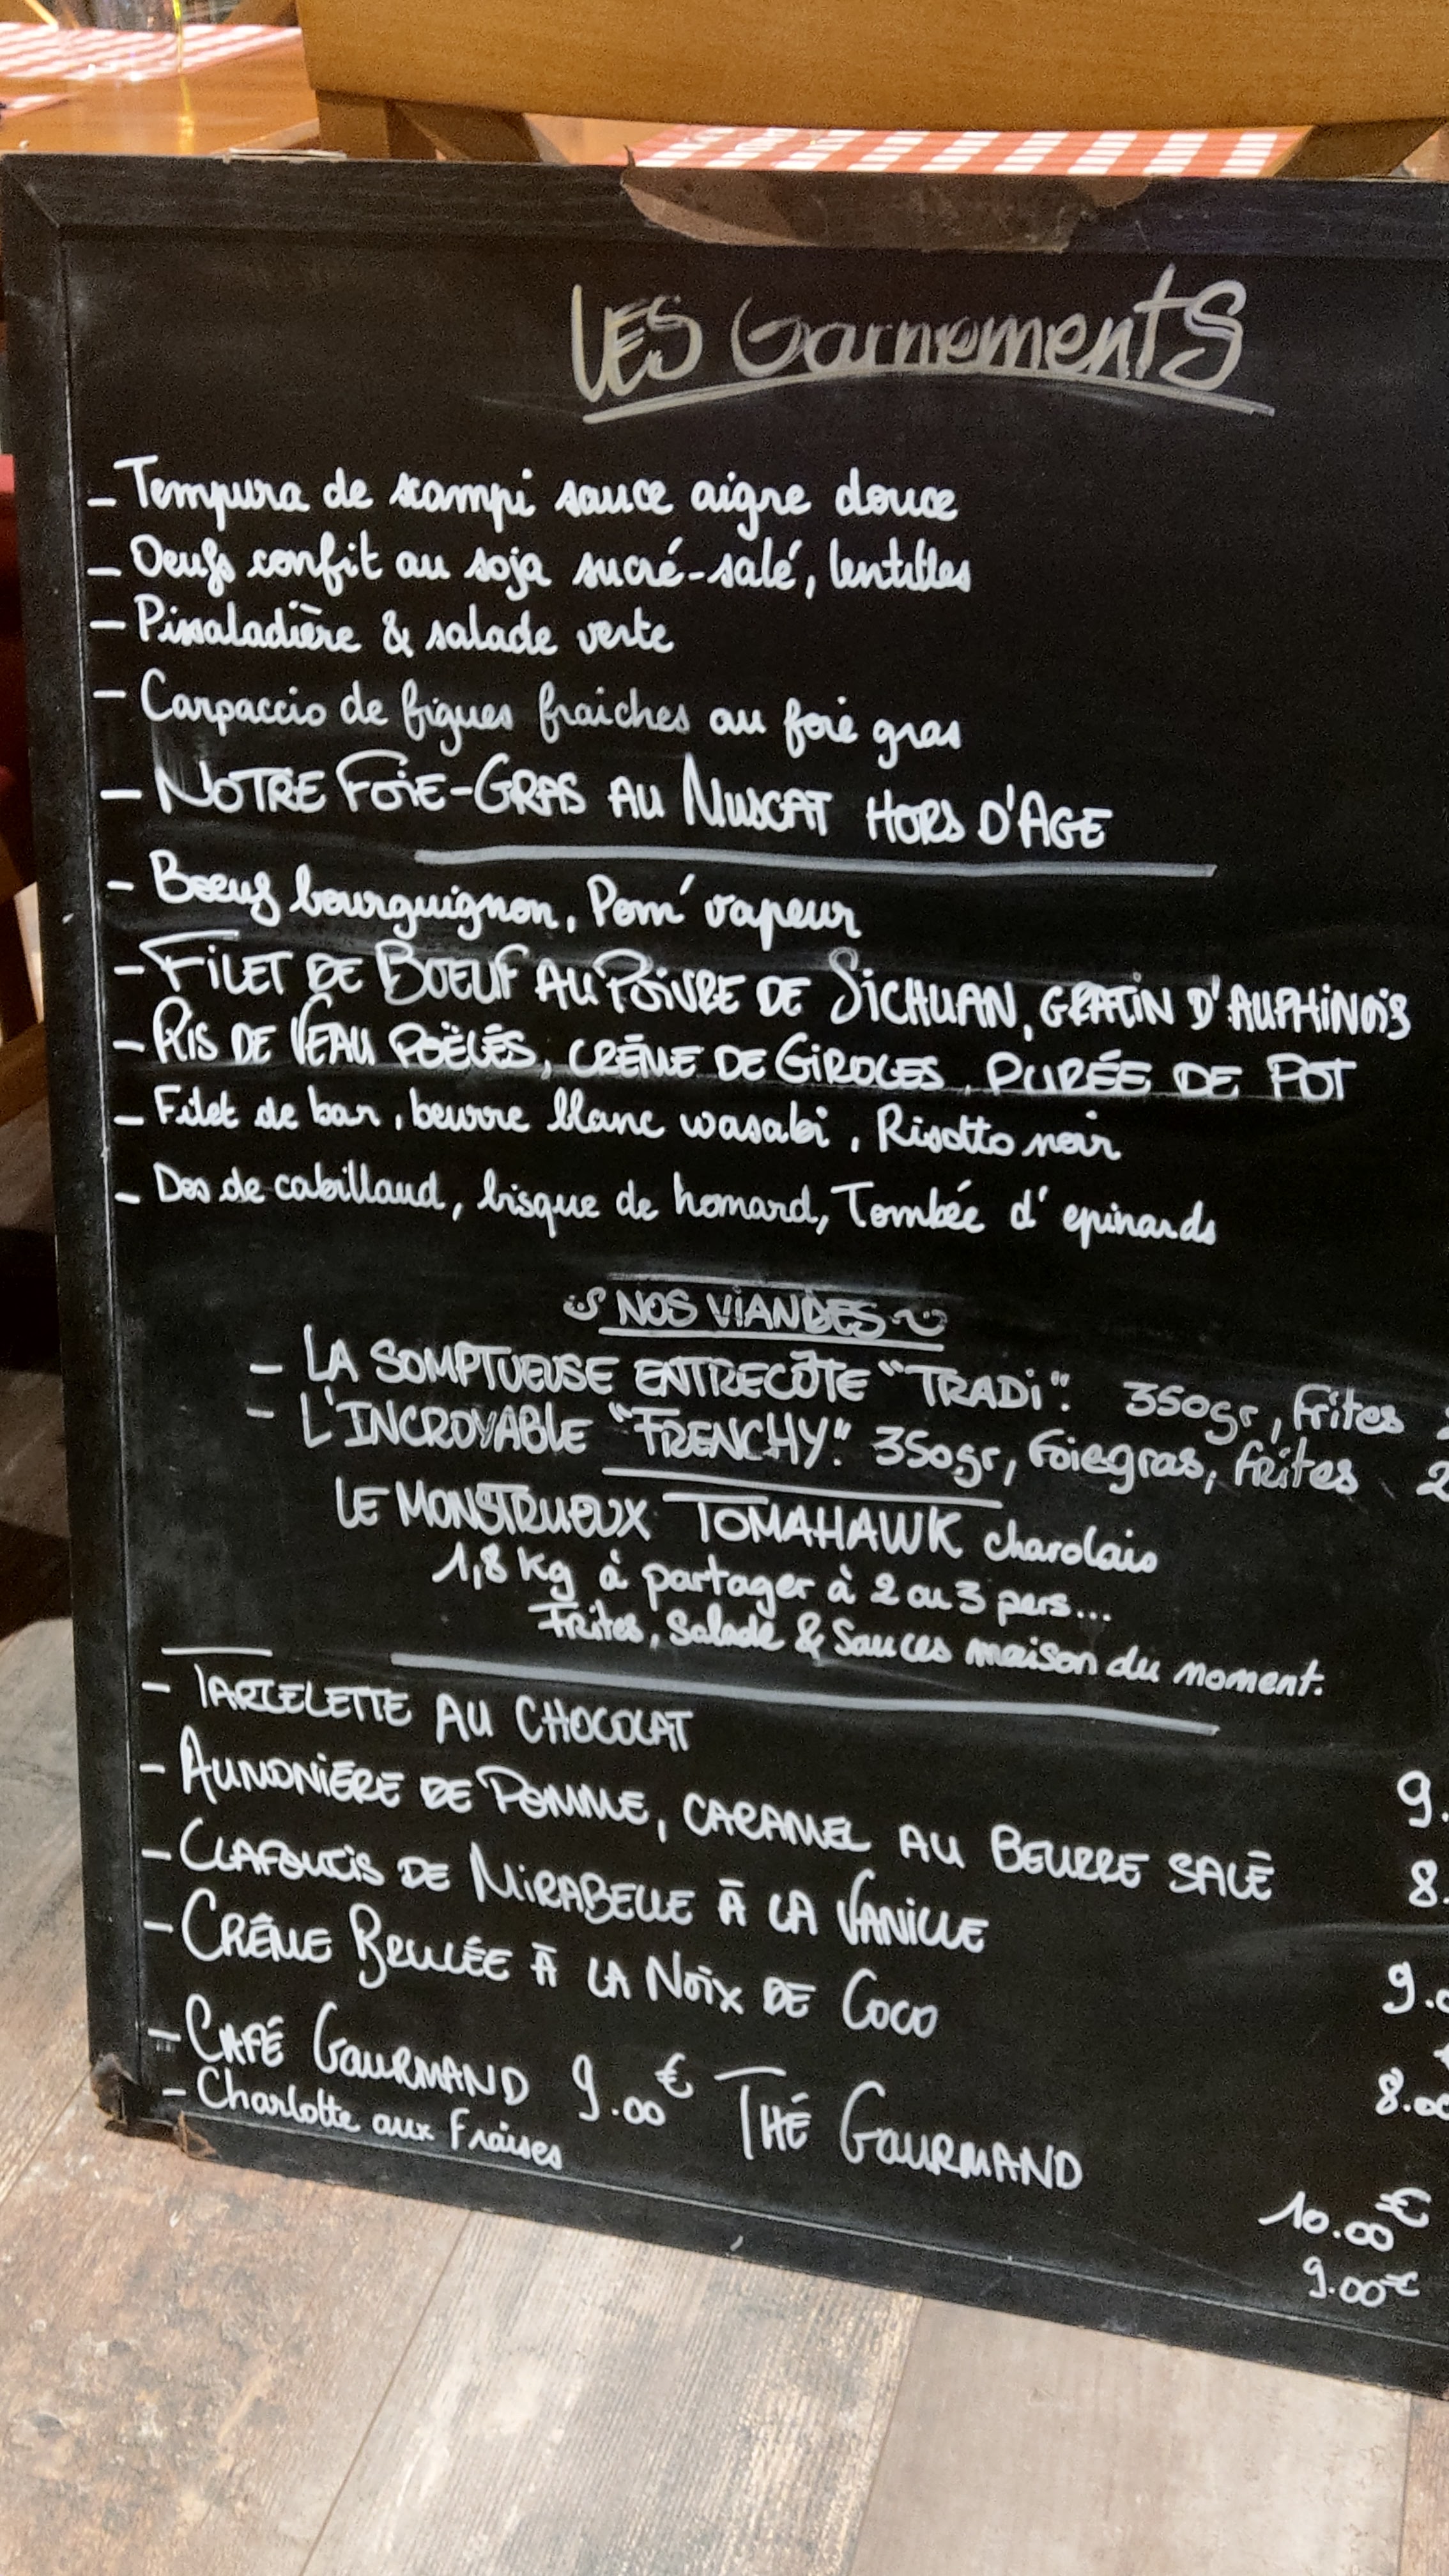 LES Garnements
- Tempura de scampi sauce aigre douce
- Oeufs confit au soja sucré-salé, lentilles
- Pissaladière & salade verte
- Carpaccio de figues fraiches au foie gras
- NOTRE FOIE-GRAS AU MUSCAT HORS D'AGE
- Boeuf bourguignon, Pom' vapeur
- FILET DE BOEUF AU POIVRE DE SICHUAN, GRATIN D'AUPHINOIS
- RIS DE VEAU POËLÉS, CRÈME DE GIROLES, PURÉE DE POT
- Filet de bar, beurre blanc wasabi, Risotto noir
- Dos de cabillaud, bisque de homard, Tombée d'epinards
NOS VIANDES
- LA SOMPTUEUSE ENTRECÔTE "TRADI". 350gr, frites
- L'INCROYABLE "FRENCHY". 350gr, Foie gras, frites 2
LE MONSTRUEUX TOMAHAWK charolais
1,8 Kg à partager à 2 ou 3 pers...
Frites, Salade & Sauces maison du moment.
- TARTELETTE AU CHOCOLAT 9.
- AUMONIÈRE DE POMME, CARAMEL AU BEURRE SALÉ 8.
- CLAFOUTIS DE MIRABELLE À LA VANILLE 9.0
- CRÊME BRULÉE À LA NOIX DE COCO 8.00
- CAFÉ GOURMAND 9.00€ THÉ GOURMAND 10.00€
- Charlotte aux Fraises 9.00€